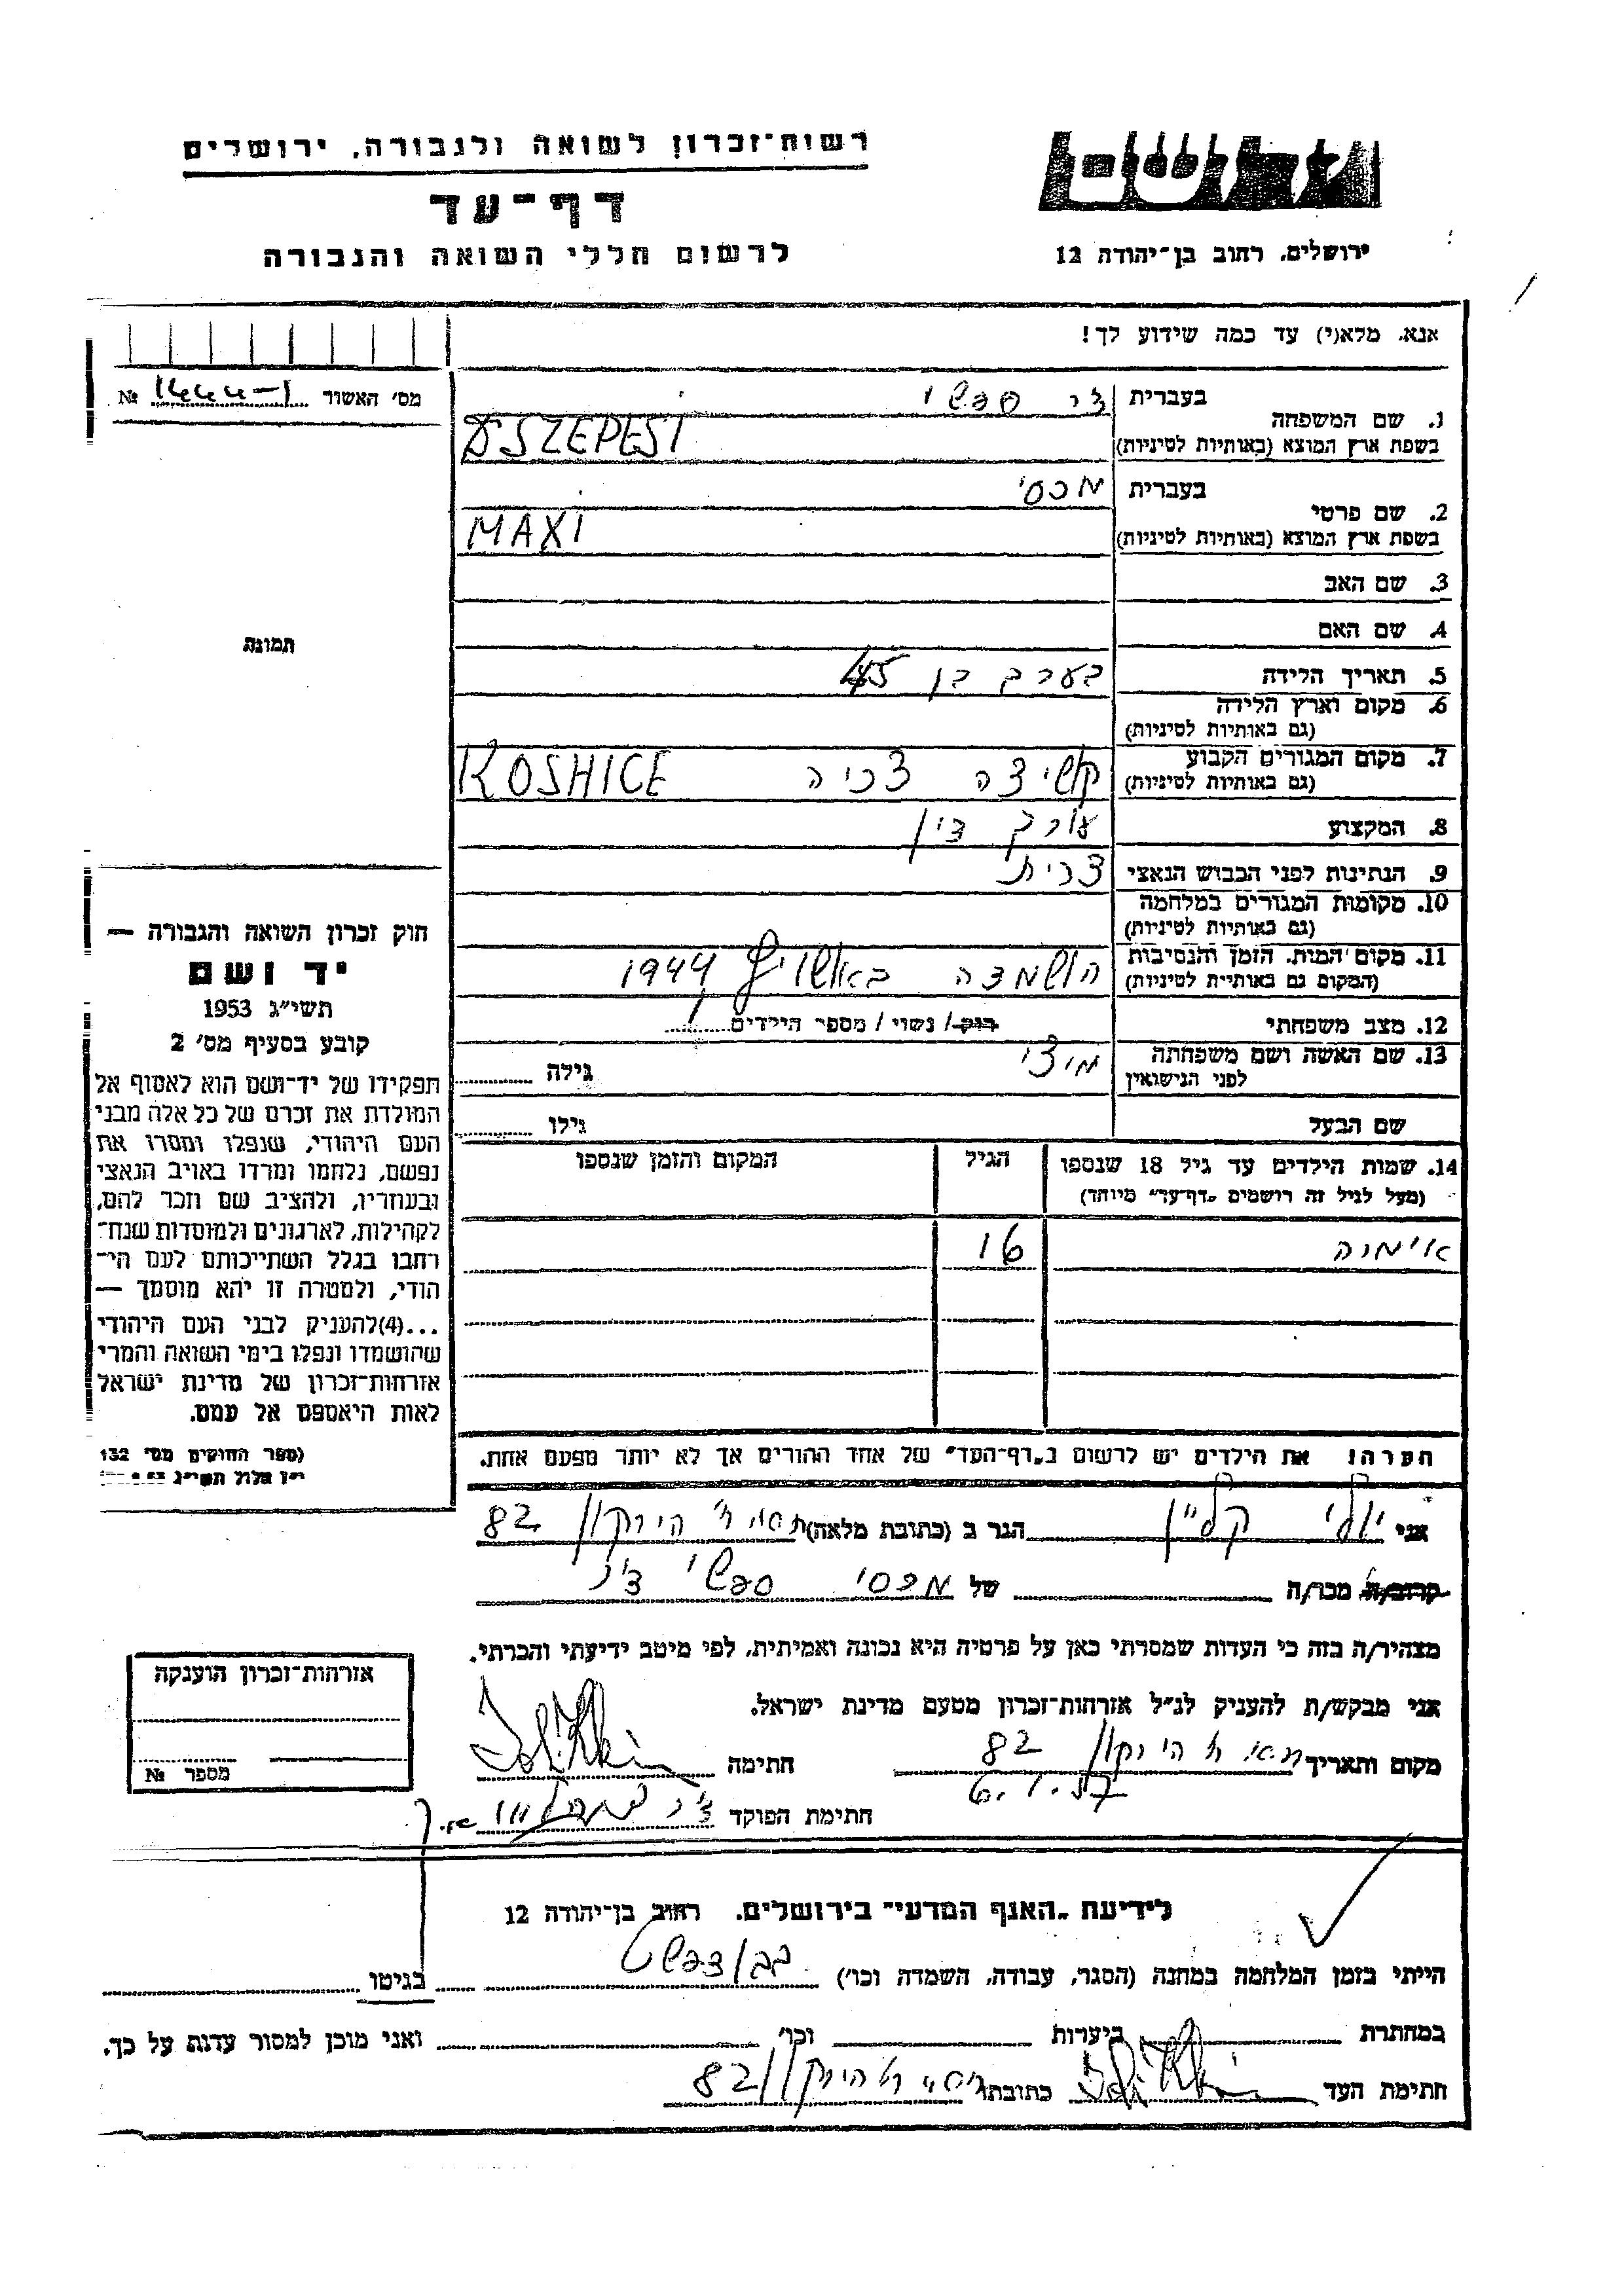 רשות-זכרון לשואה ולגבורה, ירושלים
דף-עד
לרשום חללי השואה והגבורה
ידושם
ירושלים, רחוב בן-יהודה 12
אנא, מלא(י) עד כמה שידוע לך!
מס' האשור №
1. שם המשפחה
בעברית דר ספשי
בשפת ארץ המוצא (באותיות לטיניות) SZEPESI
2. שם פרטי
בעברית מכסי
בשפת ארץ המוצא (באותיות לטיניות) MAXI
3. שם האב
4. שם האם
תמונה
5. תאריך הלידה בערב בן 45
6. מקום וארץ הלידה
(גם באותיות לטיניות)
7. מקום המגורים הקבוע קושיצה צכיה KOSHICE
(גם באותיות לטיניות)
8. המקצוע עורך דין
9. הנתינות לפני הכבוש הנאצי צכית
10. מקומות המגורים במלחמה
(גם באותיות לטיניות)
11. מקום המות, הזמן והנסיבות הושמדה באושויץ 1944
(המקום גם באותיות לטיניות)
12. מצב משפחתי רווק / נשוי / מספר הילדים 1
13. שם האשה ושם משפחתה מיצי גילה
לפני הנישואין
שם הבעל גילו
14. שמות הילדים עד גיל 18 שנספו הגיל המקום והזמן שנספו
(מעל לגיל זה רושמים "דף-עד" מיוחד)
16
הערה! את הילדים יש לרשום ב"דף-העד" של אחד ההורים אך לא יותר מפעם אחת.
חוק זכרון השואה והגבורה –
יד ושם
תשי"ג 1953
קובע בסעיף מס' 2
תפקידו של יד-ושם הוא לאסוף אל
המולדת את זכרם של כל אלה מבני
העם היהודי, שנפלו ומסרו את
נפשם, נלחמו ומרדו באויב הנאצי
ובעוזריו, ולהציב שם וזכר להם,
לקהילות, לארגונים ולמוסדות שנח-
רבו בגלל השתייכותם לעם הי-
הודי, ולמטרה זו יהא מוסמך –
...(4)להעניק לבני העם היהודי
שהושמדו ונפלו בימי השואה והמרי
אזרחות-זכרון של מדינת ישראל
לאות היאספם אל עמם.
(ספר החוקים מס' 132
י"ז אלול תשי"ג
אני יולי קליין הגר ב (כתובת מלאה) הירקון 82
קרוב/ה מכר/ה של מכסי ספשי
מצהיר/ה בזה כי העדות שמסרתי כאן על פרטיה היא נכונה ואמיתית, לפי מיטב ידיעתי והכרתי.
אני מבקש/ת להעניק לנ"ל אזרחות-זכרון מטעם מדינת ישראל.
מקום ותאריך הירקון 82 חתימה
6.1.57
חתימת הפוקד
אזרחות-זכרון הוענקה
מספר №
לידיעת "האגף המדעי" בירושלים, רחוב בן-יהודה 12
הייתי בזמן המלחמה במחנה (הסגר, עבודה, השמדה וכו') בגיטו
במחתרת ביערות וכו' ואני מוכן למסור עדות על כך.
חתימת העד כתובתו הירקון 82